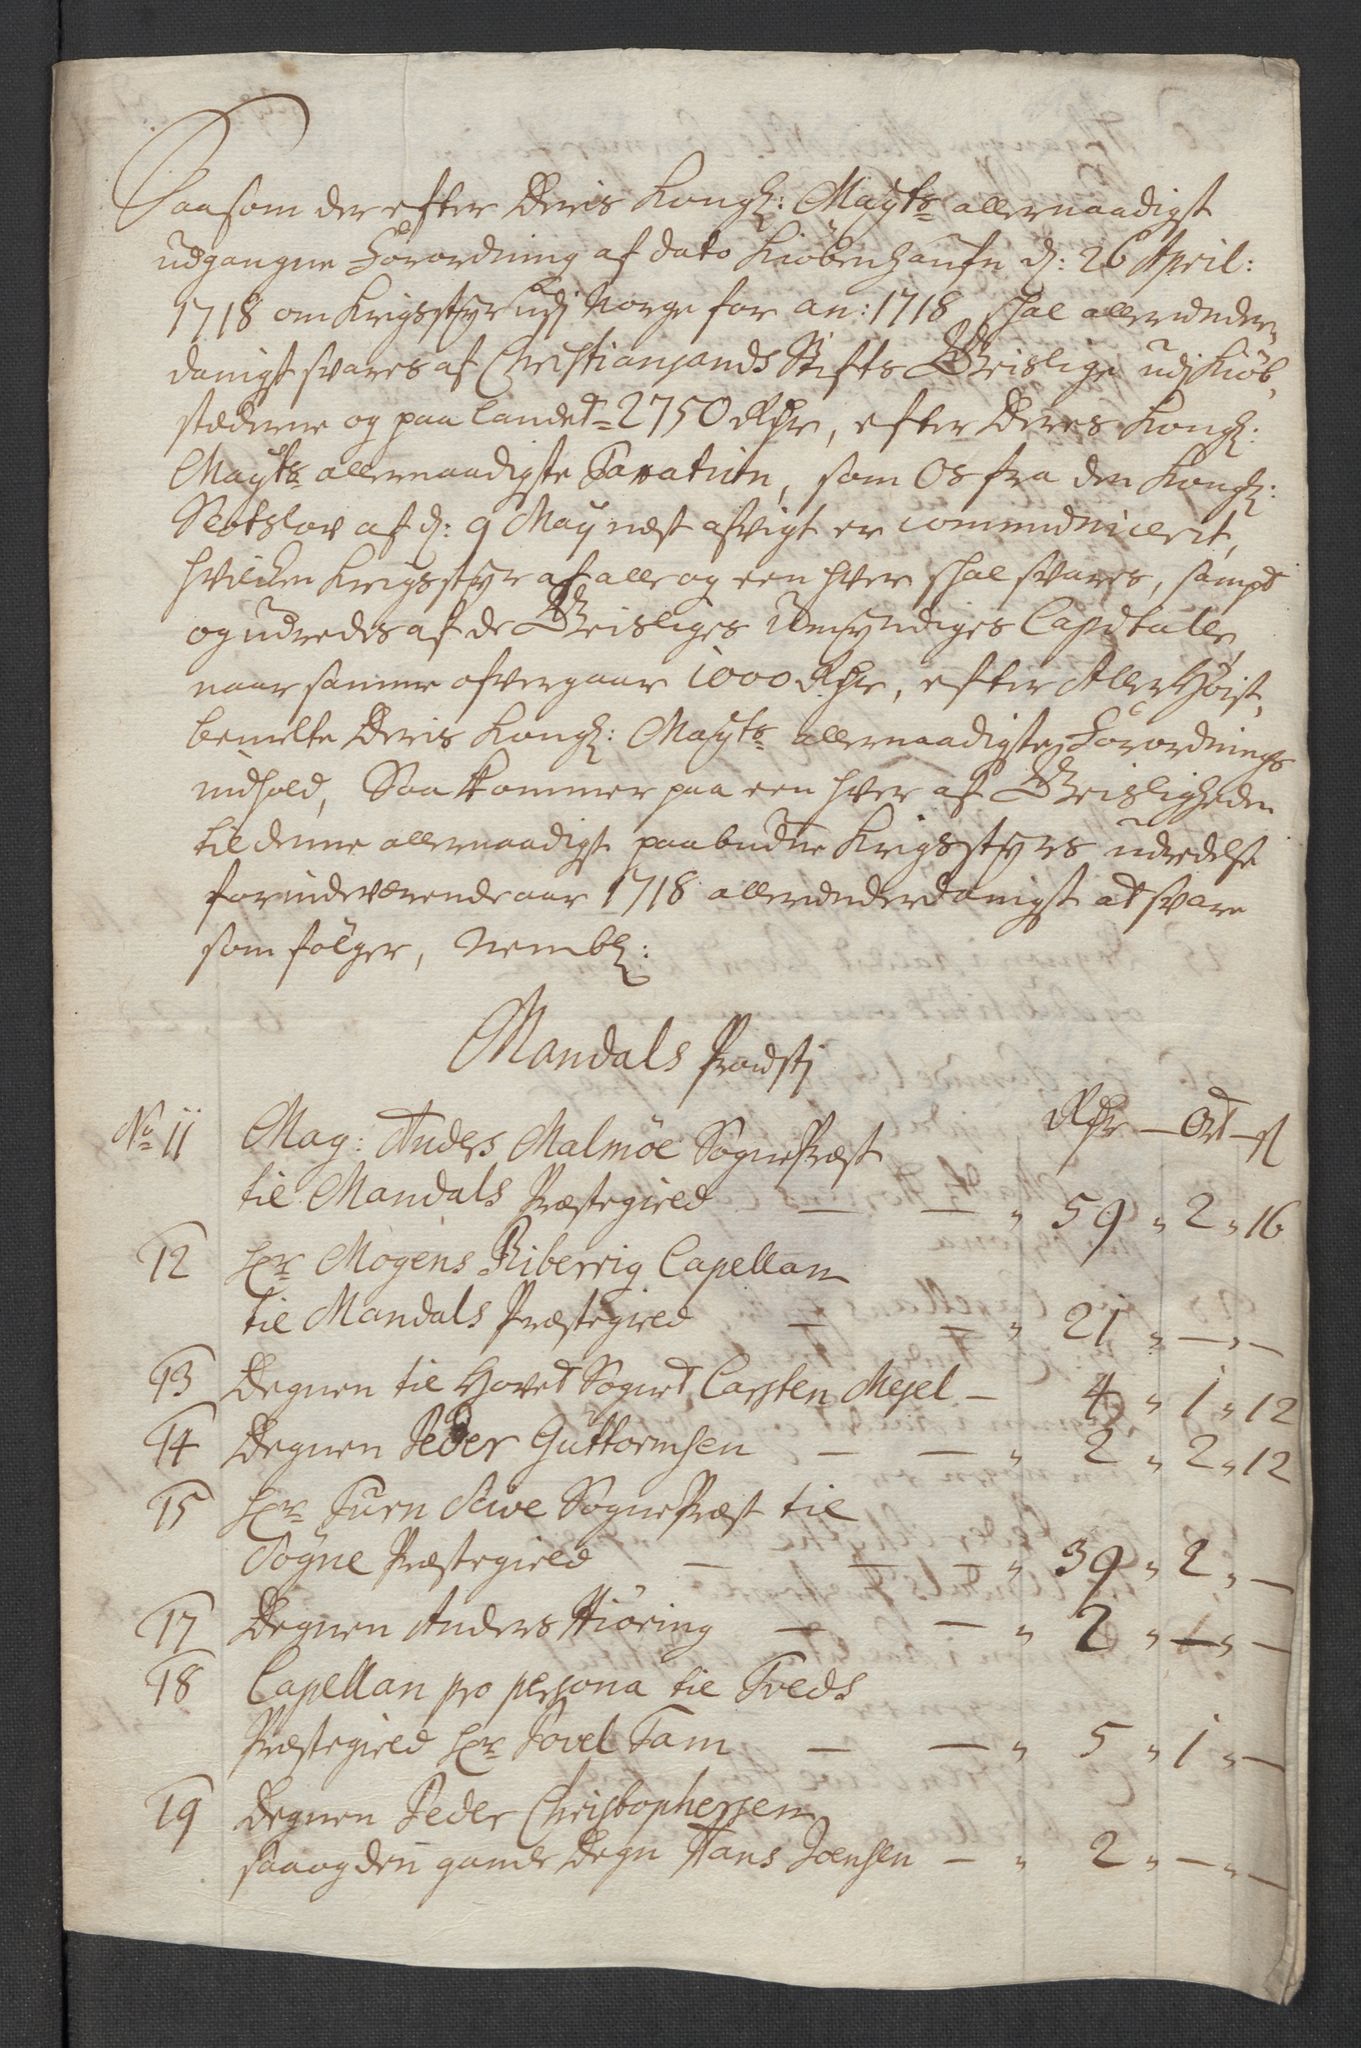 Saasom der efter Deris Kongl: Mayts allernaadigst
udgangne Forordning af dato Kiöbenhaufn d: 26 April:
1718 om Krigsstyr udj Norge for an: 1718 skal allerunder,
danigst svares af Christiansands Stifts Geislige udj Kiöb,
stæderne og paa Landet = 2750 Rdr, efter Deres Kongl:
Mayts allernaadigste Taxation, som Os fra den Kongl:
Slotslov af d: 9 May nest afvigt er communicerit,
hvilken Krigsstyr af alle og een hver skal svares, sampt
og udredes af de Geisliges Umyndiges Capitaller,
naar samme ofvergaar 1000 Rdr, efter Aller Höist,
bemelte Deris Kongl: Mayts allernaadigste Forordnings
indhold, Saa Kommer paa een hver af Geisligheden
til denne allernaadigst paabudne Krigsstyrs udredelse
for indeværende aar 1718 allerunderdanigst at svare
som fölger, Nembl:
Mandals Provstj
Rdr — Ort — sl
No 11 Mag: Anders Malmöe SognePræst
til Mandals Præstegield — — " 59 " 2 " 16
12 Hr Mogens Riberrig Capellan
til Mandals Præstegield — — " 21 " — " —
13 Degnen til Hovet Sognet Carsten Mejel — 4 " 1 " 12
14 Degnen Peder Guttormsen — — " 2 " 2 " 12
15 Hr Jurn Awe SognePræst til
Sögne Præstegield — — — " 39 " 2 " —
17 Degnen Anders Hiöring — — " 2 " — " —
18 Capellan pro persona til Treds
Præstegield Hr Povel Tam — — " 5 " 1 " —
19 Degnen Peder Christophersen
saa og den gamle Degn Hans Joensen — " 2 " — " —